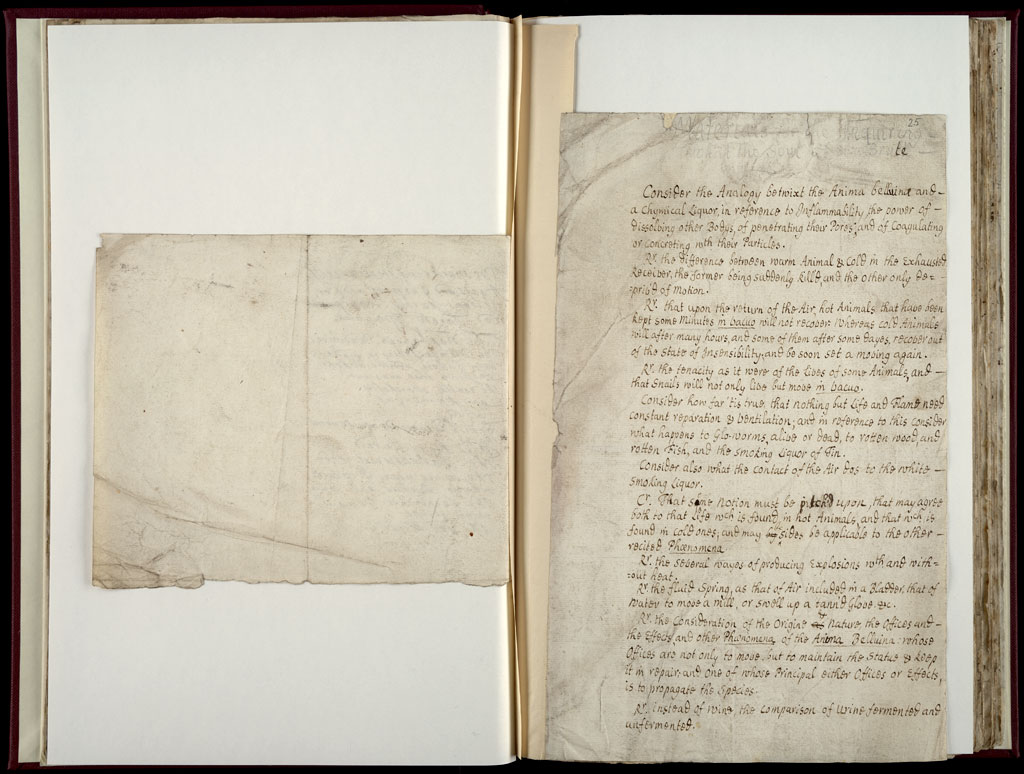 25
Materials
te
Consider the Analogy betwixt the Anima belluina and
a Chymical Liquor, in reference to Inflammability, the power of
dissolving other Bodys, of penetrating their Pores, and of Coagulating
or Concreting wth their Particles.
Rx. the difference between warm Animal & Cold in the Exhausted
Receiver, the former being suddenly kill'd, and the other only de=
=priv'd of Motion.
Rx. that upon the return of the Air, hot Animals that have been
kept some Minutes in vacuo will not recover: Whereas cold Animals
will after many hours, and some of them after some dayes, recover out
of the state of Insensibility, and be soon set a moving again.
Rx. the tenacity as it were of the Lives of some Animals, and
that Snails will not only live but move in vacuo.
Consider how far 'tis true, that nothing but Life and Flame need
constant reparation & Ventilation; and in reference to this consider
what happens to Glo-worms, alive or dead, to rotten wood, and
rotten Fish, and the smoking Liquor of Tin.
Consider also what the contact of the Air dos to the white
smoking Liquor.
Cr. That some Notion must be pitch'd upon, that may agree
both to that Life wch is found, in hot Animals, and that wch is
found in cold ones, and may sides be applicable to the other
recited Phænomena.
Rx. the several wayes of producing Explosions wth and with=
=out heat.
Rx. the fluid Spring, as that of Air included in a Bladder, that of
Water to move a mill, or swell up a tann'd Globe &c.
Rx. the Consideration of the Origine Nature, the Offices and
the Effects and other Phænomena of the Anima Belluina whose
Offices are not only to move, but to maintain the Statue & keep
it in repair; and one of whose Principal either Offices or Effects,
is to propagate the Species.
Rx. instead of wine, the Comparison of Urine fermented and
unfermented.